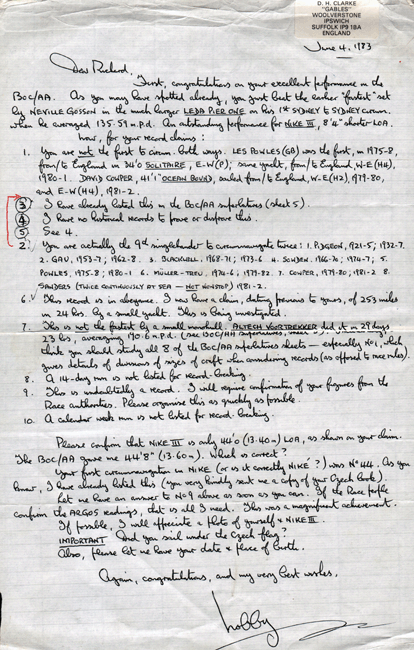 D. H. CLARKE
"GABLES"
WOOLVERSTONE
IPSWICH
SUFFOLK IP9 1BA
ENGLAND
June 4, 1983
Dear Richard,
First, congratulations on your excellent performance in the
BOC/AA. As you may have spotted already, you just beat the earlier "fastest" set
by NEVILLE GOSSON in the much larger LEDA PIER ONE on his 1st SYDNEY to SYDNEY circum.
when he averaged 135.59 n.m.p.d. An outstanding performance for NIKE III, 8'4" shorter LOA.
Now, for your record claims:
1. You are not the first to circum. both ways. LES POWLES (GB) was the first, in 1975-8,
from/to England in 34'0 SOLITAIRE, E-W(P); same yacht, from/to England, W-E(H4),
1980-1. DAVID COWPER, 41'1" OCEAN BOUND, sailed from/to England, W-E(H2), 1979-80,
and E-W(H4), 1981-2.
3 I have already listed this in the BOC/AA superlatives (sheet 5).
4 I have no historical records to prove or disprove this.
5 See 4.
2. You are actually the 9th singlehander to circumnavigate twice: 1. PIDGEON, 1921-5; 1932-7.
2. GAU, 1953-7; 1962-8. 3. BLACKWELL 1968-71; 1973-6 4. SOWDEN 1966-70; 1974-7; 5.
POWLES, 1975-8; 1980-1 6. MÜLLER-TREU, 1974-6; 1979-82. 7. COWPER, 1979-80; 1981-2 8.
SANDERS (TWICE CONTINUOUSLY AT SEA - NOT NONSTOP) 1981-2.
6. This record is in abeyance. I now have a claim, dating previous to yours, of 253 miles
in 24 hrs. by a small yacht. This is being investigated.
7. This is not the fastest by a small monohull. ALTECH VOORTREKKER did it in 29 days
23 hrs, averaging 190.6 n.p.d. (see BOC/AA superlatives,
think you should study all 8 of the BOC/AA superlatives sheets - especially No1, which
gives details of divisions of sizes of craft when considering records (as opposed to race rules).
8. A 14-day run is not listed for record-breaking.
9. This is undoubtedly a record. I will require confirmation of your figures from the
Race authorities. Please organise this as quickly as possible.
10. A calendar week run is not listed for record-breaking.
Please confirm that NIKE III is only 44'0 (13.40m) LOA, as shown on your claim.
The BOC/AA gave me 44'8" (13.60m). Which is correct?
Your first circumnavigation in NIKE (or is it correctly NIKÉ?) was No 44. As you
know, I have already listed this (you very kindly sent me a copy of your Czech book).
Let me have an answer to No 9 above as soon as you can. If the Race people
confirm the ARGOS readings, that is all I need. This was a magnificent achievement.
If possible, I will appreciate a photo of yourself & NIKE III.
IMPORTANT Did you sail under the Czech flag?
Also, please let me have your date & place of birth.
Again, congratulations, and my very best wishes.
Nobby